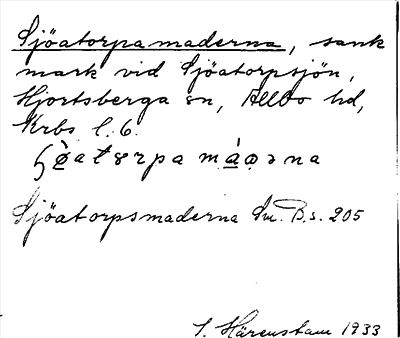 Sjöatorpamaderna, sank
mark vid Sjöatorpsjön,
Hjortsberga sn, Allbo hd,
Krbs l. 6.
ʂö̀atɵrpa má̱ǫəna
Sjöatorpsmaderna Sm. B.s. 205
S. Härenstam 1933